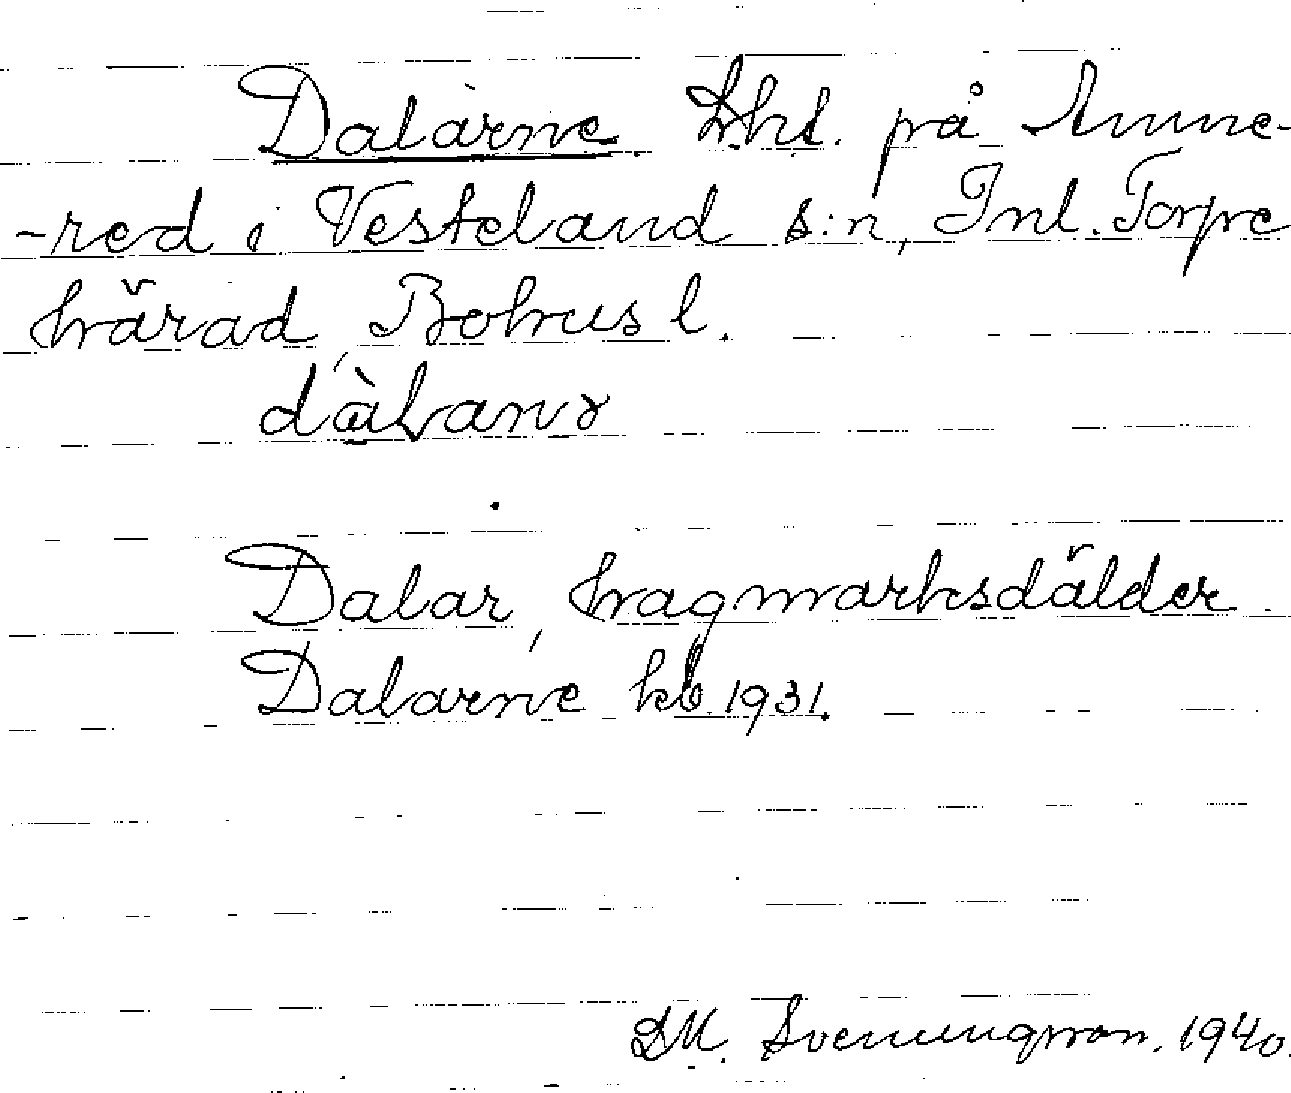 Dalarne Lht. på Anne-
-red i Vesteland s:n, Inl. Torpe
härad, Bohus l.
Dalar, hagmarksdälder
Dalarne kb 1931.
S.M. Svenungsson. 1940.